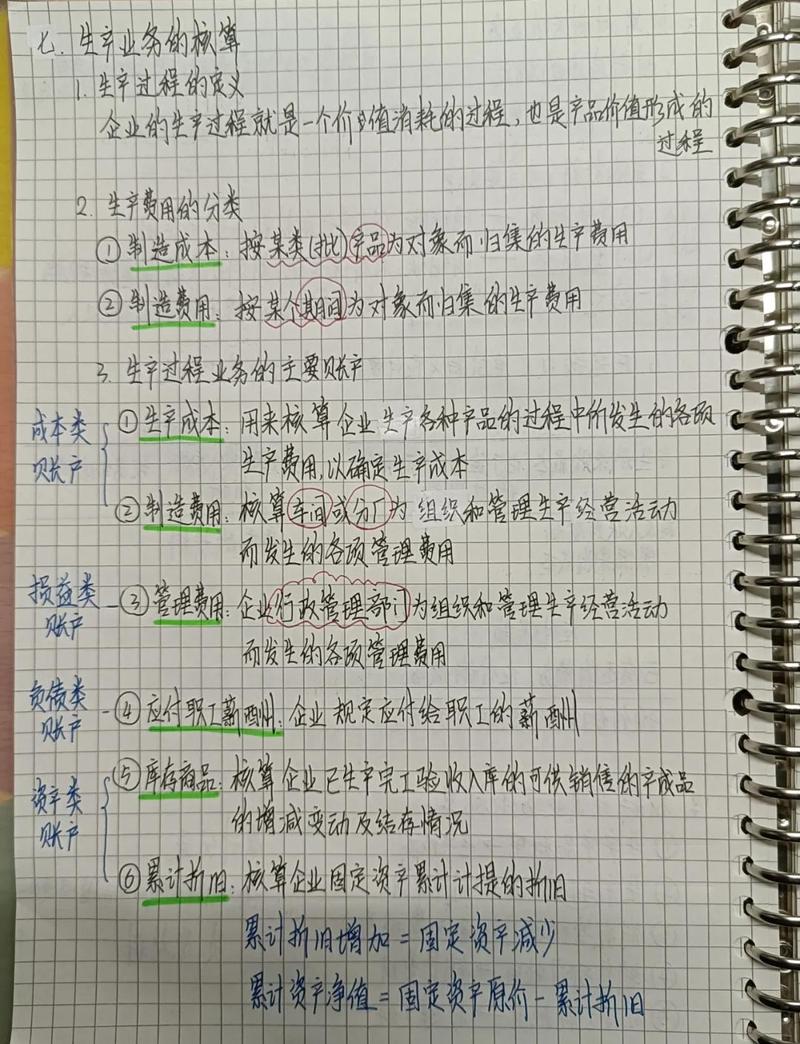 七. 生产业务的核算
1. 生产过程的定义
企业的生产过程就是一个价值消耗的过程，也是产品价值形成的
过程
2. 生产费用的分类
① 制造成本：按某类(批)产品为对象而归集的生产费用
② 制造费用：按某个期间为对象而归集的生产费用
3. 生产过程业务的主要账户
成本类
账户
① 生产成本：用来核算企业生产各种产品的过程中所发生的各项
生产费用，以确定生产成本
② 制造费用：核算车间或分厂为组织和管理生产经营活动
而发生的各项管理费用
损益类
账户
③ 管理费用：企业行政管理部门为组织和管理生产经营活动
而发生的各项管理费用
负债类
账户
④ 应付职工薪酬：企业规定应付给职工的薪酬
资产类
账户
⑤ 库存商品：核算企业已生产完工验收入库的可供销售的产成品
的增减变动及结存情况
⑥ 累计折旧：核算企业固定资产累计计提的折旧
累计折旧增加 = 固定资产减少
累计资产净值 = 固定资产原价 - 累计折旧